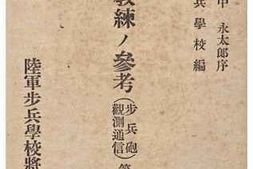 中永太郎序
兵學校編
教練ノ參考
(步兵砲
觀測通信)
第
陸軍步兵學校將